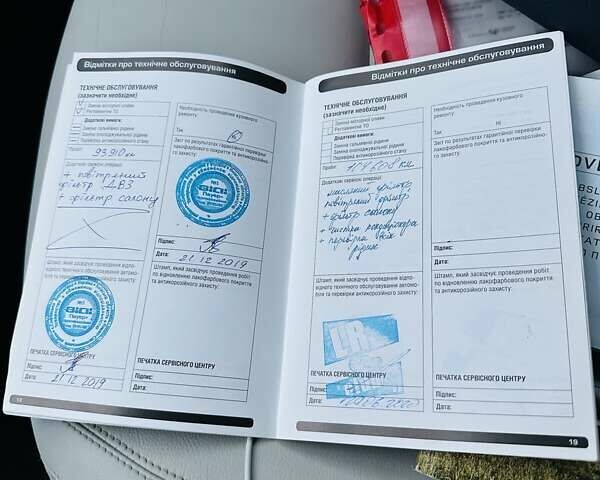 Відмітки про технічне обслуговування
ТЕХНІЧНЕ ОБСЛУГОВУВАННЯ
(зазначити необхідне)
Заміна моторної оливи
Регламентне ТО
Додаткові вимоги:
Заміна гальмівної рідини
Заміна охолоджувальної рідини
Перевірка антикорозійного стану
Пробіг:
Додаткові сервісні операції:
+ повітряний
фільтр ДВЗ
+ фільтр салону
Штамп, який засвідчує проведення відпо-
відного технічного обслуговування автомо-
біля та перевірки антикорозійного захисту:
ПЕЧАТКА СЕРВІСНОГО ЦЕНТРУ
Підпис:
Дата: 21.12.2019
Необхідність проведення кузовного
ремонту:
Так
Ні
Звіт по результатах гарантійної перевірки
лакофарбового покриття та антикорозійно-
го захисту:
№1
Підпис:
Дата: 21.12.2019
Штамп, який засвідчує проведення робіт
по відновленню лакофарбового покриття
та антикорозійного захисту:
Відмітки про технічне обслуговування
ТЕХНІЧНЕ ОБСЛУГОВУВАННЯ
(зазначити необхідне)
Заміна моторної оливи
Регламентне ТО
Додаткові вимоги:
Заміна гальмівної рідини
Заміна охолоджувальної рідини
Перевірка антикорозійного стану
Пробіг:
Додаткові сервісні операції:
масляний фільтр
повітряний фільтр
+ фільтр салону
+ перевірка всіх
рідин
Штамп, який засвідчує проведення відпо-
відного технічного обслуговування автомо-
біля та перевірки антикорозійного захисту:
ПЕЧАТКА СЕРВІСНОГО ЦЕНТРУ
Підпис:
Дата:
Необхідність проведення кузовного
ремонту:
Так
Ні
Звіт по результатах гарантійної перевірки
лакофарбового покриття та антикорозійно-
го захисту:
Підпис:
Дата:
Штамп, який засвідчує проведення робіт
по відновленню лакофарбового покриття
та антикорозійного захисту:
ПЕЧАТКА СЕРВІСНОГО ЦЕНТРУ
Підпис:
Дата:
19